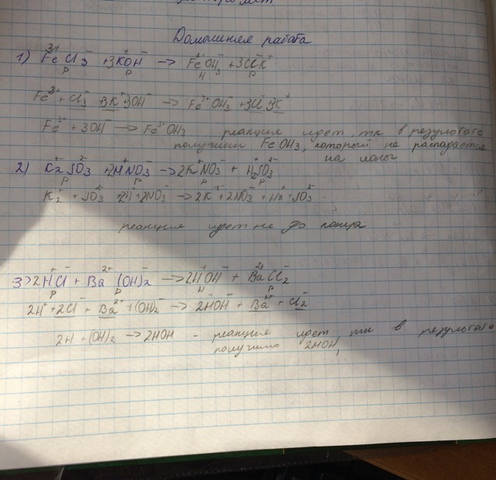 Домашняя работа
1) Fe³⁺Cl₃⁻ + 3K⁺OH⁻ → FeOH₃⁻ + 3ClK
Р Р Н Р
Fe³⁺ + Cl₃⁻ 3K 3OH⁻ → Fe³⁺OH₃ + 3Cl 3K
Fe³⁺ + 3OH → Fe³⁺OH₃ реакция идет, тк в результате
получили FeOH₃, который не распадается
на ионы
2) K₂⁺SO₃²⁻ 2HNO₃ → 2K⁺NO₃ + H₂SO₃²⁻
Р Р Р Р
K₂⁺ + SO₃²⁻ 2H + 2NO₃⁻ → 2K + 2NO₃ + H₂ + SO₃
реакция идет не до конца
3) 2H⁺Cl⁻ + Ba²⁺(OH)₂⁻ → 2HOH⁻ + BaCl₂⁻
Р Р Н Р
2H⁺ + 2Cl⁻ + Ba²⁺ + (OH)₂⁻ → 2HOH + Ba²⁺ + Cl₂⁻
2H + (OH)₂ → 2HOH - реакция идет, тк в результате
получили 2HOH,